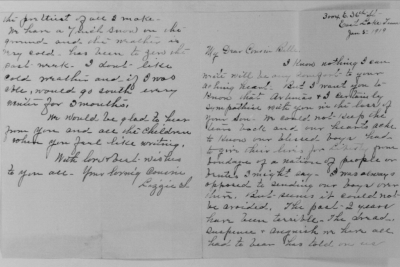 Jan 5. 1919
My Dear Cousin
I know nothing I can
write will be any comfort to your
aching heart. But I want you to
know that and I certainly
sympathise with you in the loss of
your Son. We could not keep the
tears back and our hearts ache
to know our blessed boys had
to give their lives, for the
bondage of a nation of people or
brutes I might say. I was always
opposed to sending our boys over
there. But seems it could not
be avoided. The past 2 years
have been terrible. The dread
suspense & anguish we have all
had to bear has told on us
the prettiest I make.
We have a 7 inch snow on the
ground and the weather is
very cold. has been to zero the
past week. I dont like
cold weather and if I was
able, would go south every
winter for 3 months.
We would be glad to hear
from you and all the Children
when you feel like writing.
With love & best wishes
to you all. Your loving Cousin
Lizzie